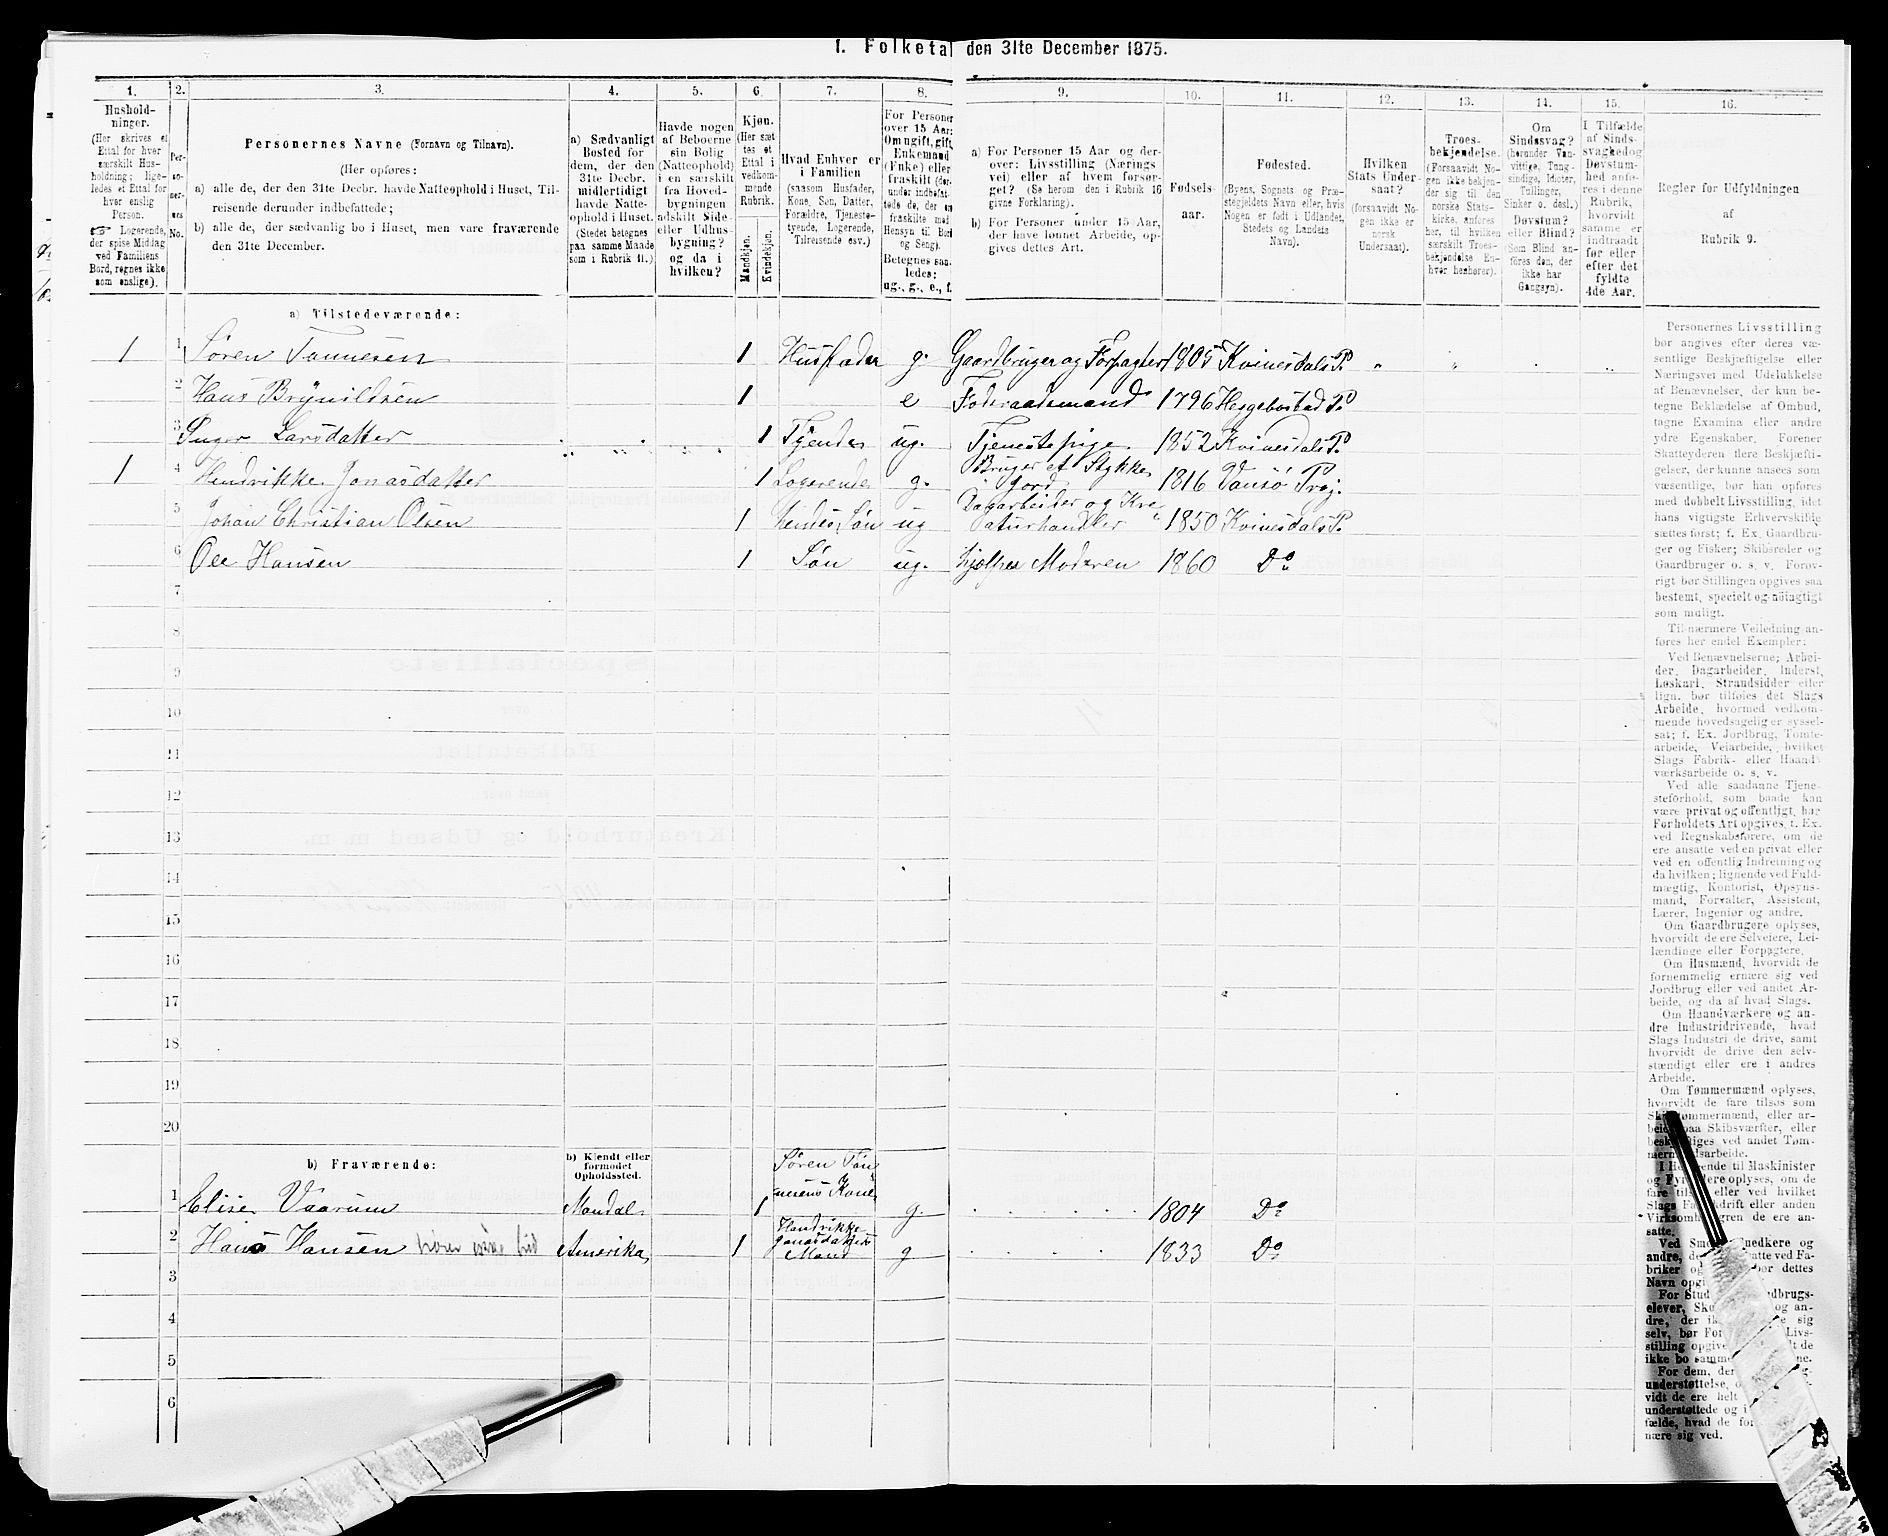 1. Folketal den 31te December 1875.
1. 2. 3. 4. 5. 6. 7. 8. 9. 10. 11. 12. 13. 14. 15. 16.
Hushold-
ninger.
(Her skrives et
Ettal for hver
særskilt Hus-
holdning; lige-
ledes et Ettal for
hver enslig
Person.
☞ Logerende,
der spise Middag
ved Familiens
Bord, regnes ikke
som enslige).
Per-
soner-
nes
No.
Personernes Navne (Fornavn og Tilnavn).
(Her opføres:
a) alle de, der den 31te Decbr. havde Natteophold i Huset, Til-
reisende derunder indbefattede;
b) alle de, der sædvanlig bo i Huset, men vare fraværende
den 31te December.
a) Sædvanligt
Bosted for
dem, der den
31te Decbr.
midlertidigt
havde Natte-
ophold i Huset.
(Stedet betegnes
paa samme Maade
som i Rubrik 11.)
Havde nogen
af Beboerne
sin Bolig
(Natteophold)
i en særskilt
fra Hoved-
bygningen
adskilt Side-
eller Udhus-
bygning?
og da i
hvilken?
Kjøn.
(Her sæt
tes et
Ettal i
vedkom-
mende
Rubrik.
Mandkjøn.
Kvindekjøn.
Hvad Enhver er
i Familien
(saasom Husfader,
Kone, Søn, Datter,
Forældre, Tjeneste-
tyende, Logerende,
Tilreisende osv.)
For Personer
over 15 Aar:
Om ugift, gift,
Enkemand
(Enke) eller
fraskilt (der-
under indbefat-
tede de, der er
fraskilte med
Hensyn til Bord
og Seng).
Betegnes saa-
ledes:
ug., g., e., f.
a) For Personer 15 Aar og der-
over: Livsstilling (Nærings
vei) eller af hvem forsør-
get? (Se herom den i Rubrik 16
givne Forklaring).
b) For Personer under 15 Aar,
der have lønnet Arbeide, op-
gives dettes Art.
Fødsels-
aar.
Fødested.
(Byens, Sognets og Præ-
stegjeldets Navn eller, hvis
Nogen er født i Udlandet,
Stedets og Landets
Navn).
Hvilken
Stats Under-
saat?
(forsaavidt No-
gen ikke er
norsk
Undersaat).
Troes-
bekjendelse.
(Forsaavidt No-
gen ikke bekjen-
der sig til den
norske Stats-
kirke, anføres
her, til hvilken
særskilt Troes-
bekjendelse En-
hver henhører).
Om
Sindssvag?
(herunder Van-
vittige, Tung-
sindige, Idioter,
Tullinger,
Sinker o. desl.)
Døvstum?
eller Blind?
(Som Blind an-
føres den, der
ikke har
Gangsyn).
I Tilfælde
af Sinds-
svaghed og
Døvstum-
hed anfø-
res i denne
Rubrik,
hvorvidt
samme er
indtraadt
før eller
efter det
fyldte
4de Aar.
Regler for Udfyldningen
af
Rubrik 9.
a) Tilstedeværende:
1 1 Søren Tønnesen 1 Husfader g. Gaardbruger og Forpagter 1805 Kvinesdals P.
2 Hans Brynildsen 1 e Føderaadsmand 1796 Heggebostad P.
3 Inger Larsdatter 1 Tjender ug. Tjenestepige 1852 Kvinesdals P.
1 4 Hendrikke Jonasdatter 1 Logerende g. Bruger et Stykke
jord 1816 Vansø Præj.
5 Johan Christian Olsen 1 hendes Søn ug Dagarbeider og Kre
aturhandler 1850 Kvinesdals P.
6 Ole Hansen 1 Søn ug. hjælper Moderen 1860 Do
7
8
9
10
11
12
13
14
15
16
17
18
19
20
b) Fraværende:
b) Kjendt eller
formodet
Opholdssted.
1 Elise Vaarum Mandal 1 Søren Tøn
nesens Kone g. 1804 Do
2 Hans Hansen Amerika 1 Hendrikke
Jonasdatters
Mand g 1833 Do
3
4
5
6
Personernes Livsstilling
bør angives efter deres væ-
sentlige Beskjæftigelse eller
Næringsvei med Udelukkelse
af Benævnelser, der kun be-
tegne Beklædelse af Ombud,
tagne Examina eller andre
ydre Egenskaber. Forener
Skatteyderen flere Beskjæfti-
gelser, der kunne ansees som
væsentlige, bør han opføres
med dobbelt Livsstilling, idet
hans vigtigste Erhvervskilde
sættes først; f. Ex. Gaardbru-
ger og Fisker; Skibsreder og
Gaardbruger o. s. v. Forøv-
rigt bør Stillingen opgives saa
bestemt, specielt og nöiagtigt
som muligt.
Til nærmere Veiledning an-
føres her endel Exempler:
Ved Benævnelserne; Arbei-
der, Dagarbeider, Inderst,
Løskarl, Strandsidder eller
lign. bør tilføies det Slags
Arbeide, hvormed vedkom-
mende hovedsagelig er syssel-
sat; f. Ex. Jordbrug, Tomte-
arbeide, Veiarbeide, hvilket
Slags Fabrik- eller Haand-
værksarbeide o. s. v.
Ved alle saadanne Tjene-
steforhold, som baade kan
være privat og offentligt, bør
Forholdets Art opgives, t. Ex.
ved Regnskabsførere, om de
ere ansatte ved en privat eller
ved en offentlig Indretning og
da hvilken; lignende ved Fuld-
mægtig, Kontorist, Opsyns-
mand, Forvalter, Assistent,
Lærer, Ingeniør og andre.
Om Gaardbrugere oplyses,
hvorvidt de ere Selveiere, Lei-
lændinge eller Forpagtere.
Om Husmænd, hvorvidt de
fornemmelig ernære sig ved
Jordbrug eller ved andet Ar-
beide, og da af hvad Slags.
Om Haandværkere og an-
dre Industridrivende, hvad
Slags Industri de drive, samt
hvorvidt de drive den selv-
stændigt eller ere i andres
Arbeide.
Om Tømmermænd oplyses,
hvorvidt de fare tilsøs som
Skibstømmermænd, eller ar-
beide paa Skibsværfter, eller
beskjæftiges ved andet Tøm-
mermandsarbeide.